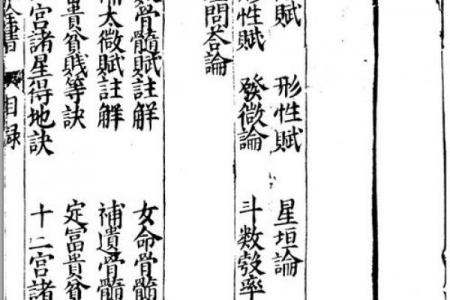 賦 形性賦 星垣論
形性賦 發微論 斗数彀率
問答論
骨髓賦註解 女命骨髓
太微賦註解 補遺骨髓
貴貧賎等訣 定冨貴貧
宮諸星得地訣 十二宮諸
書 目録